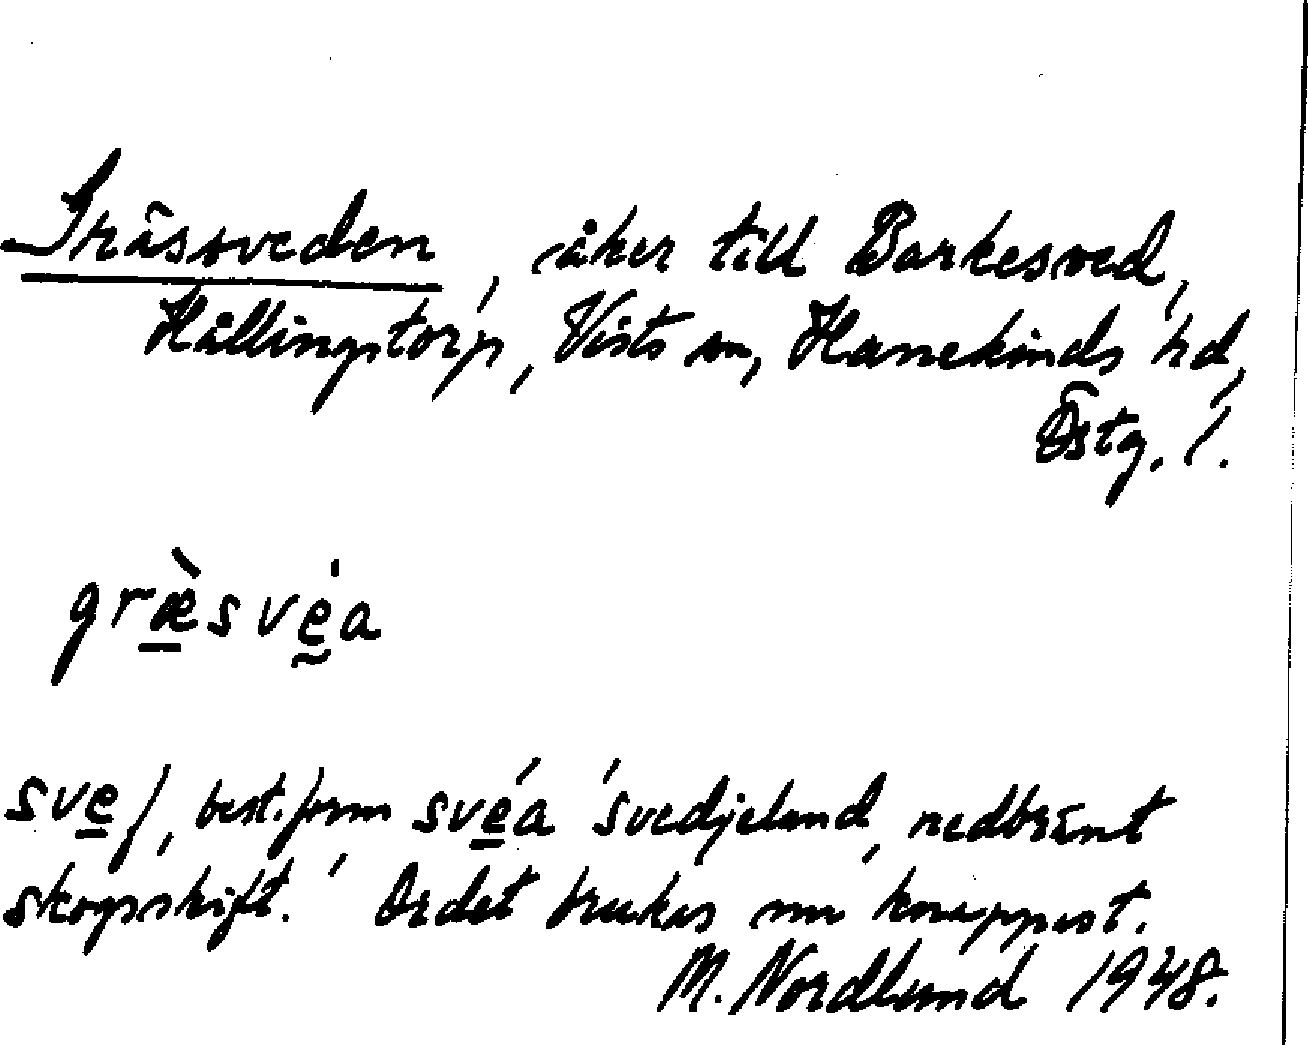 Gräsveden, åker till Barkesved,
Hällingstorp, Vists sn, Hanekinds hd,
Östg. l.
græ̀svéa
sve f, best. form svéa 'svedjeland, nedbränt
skogsskift.' Ordet brukas nu knappast.
M. Nordlund 1948.